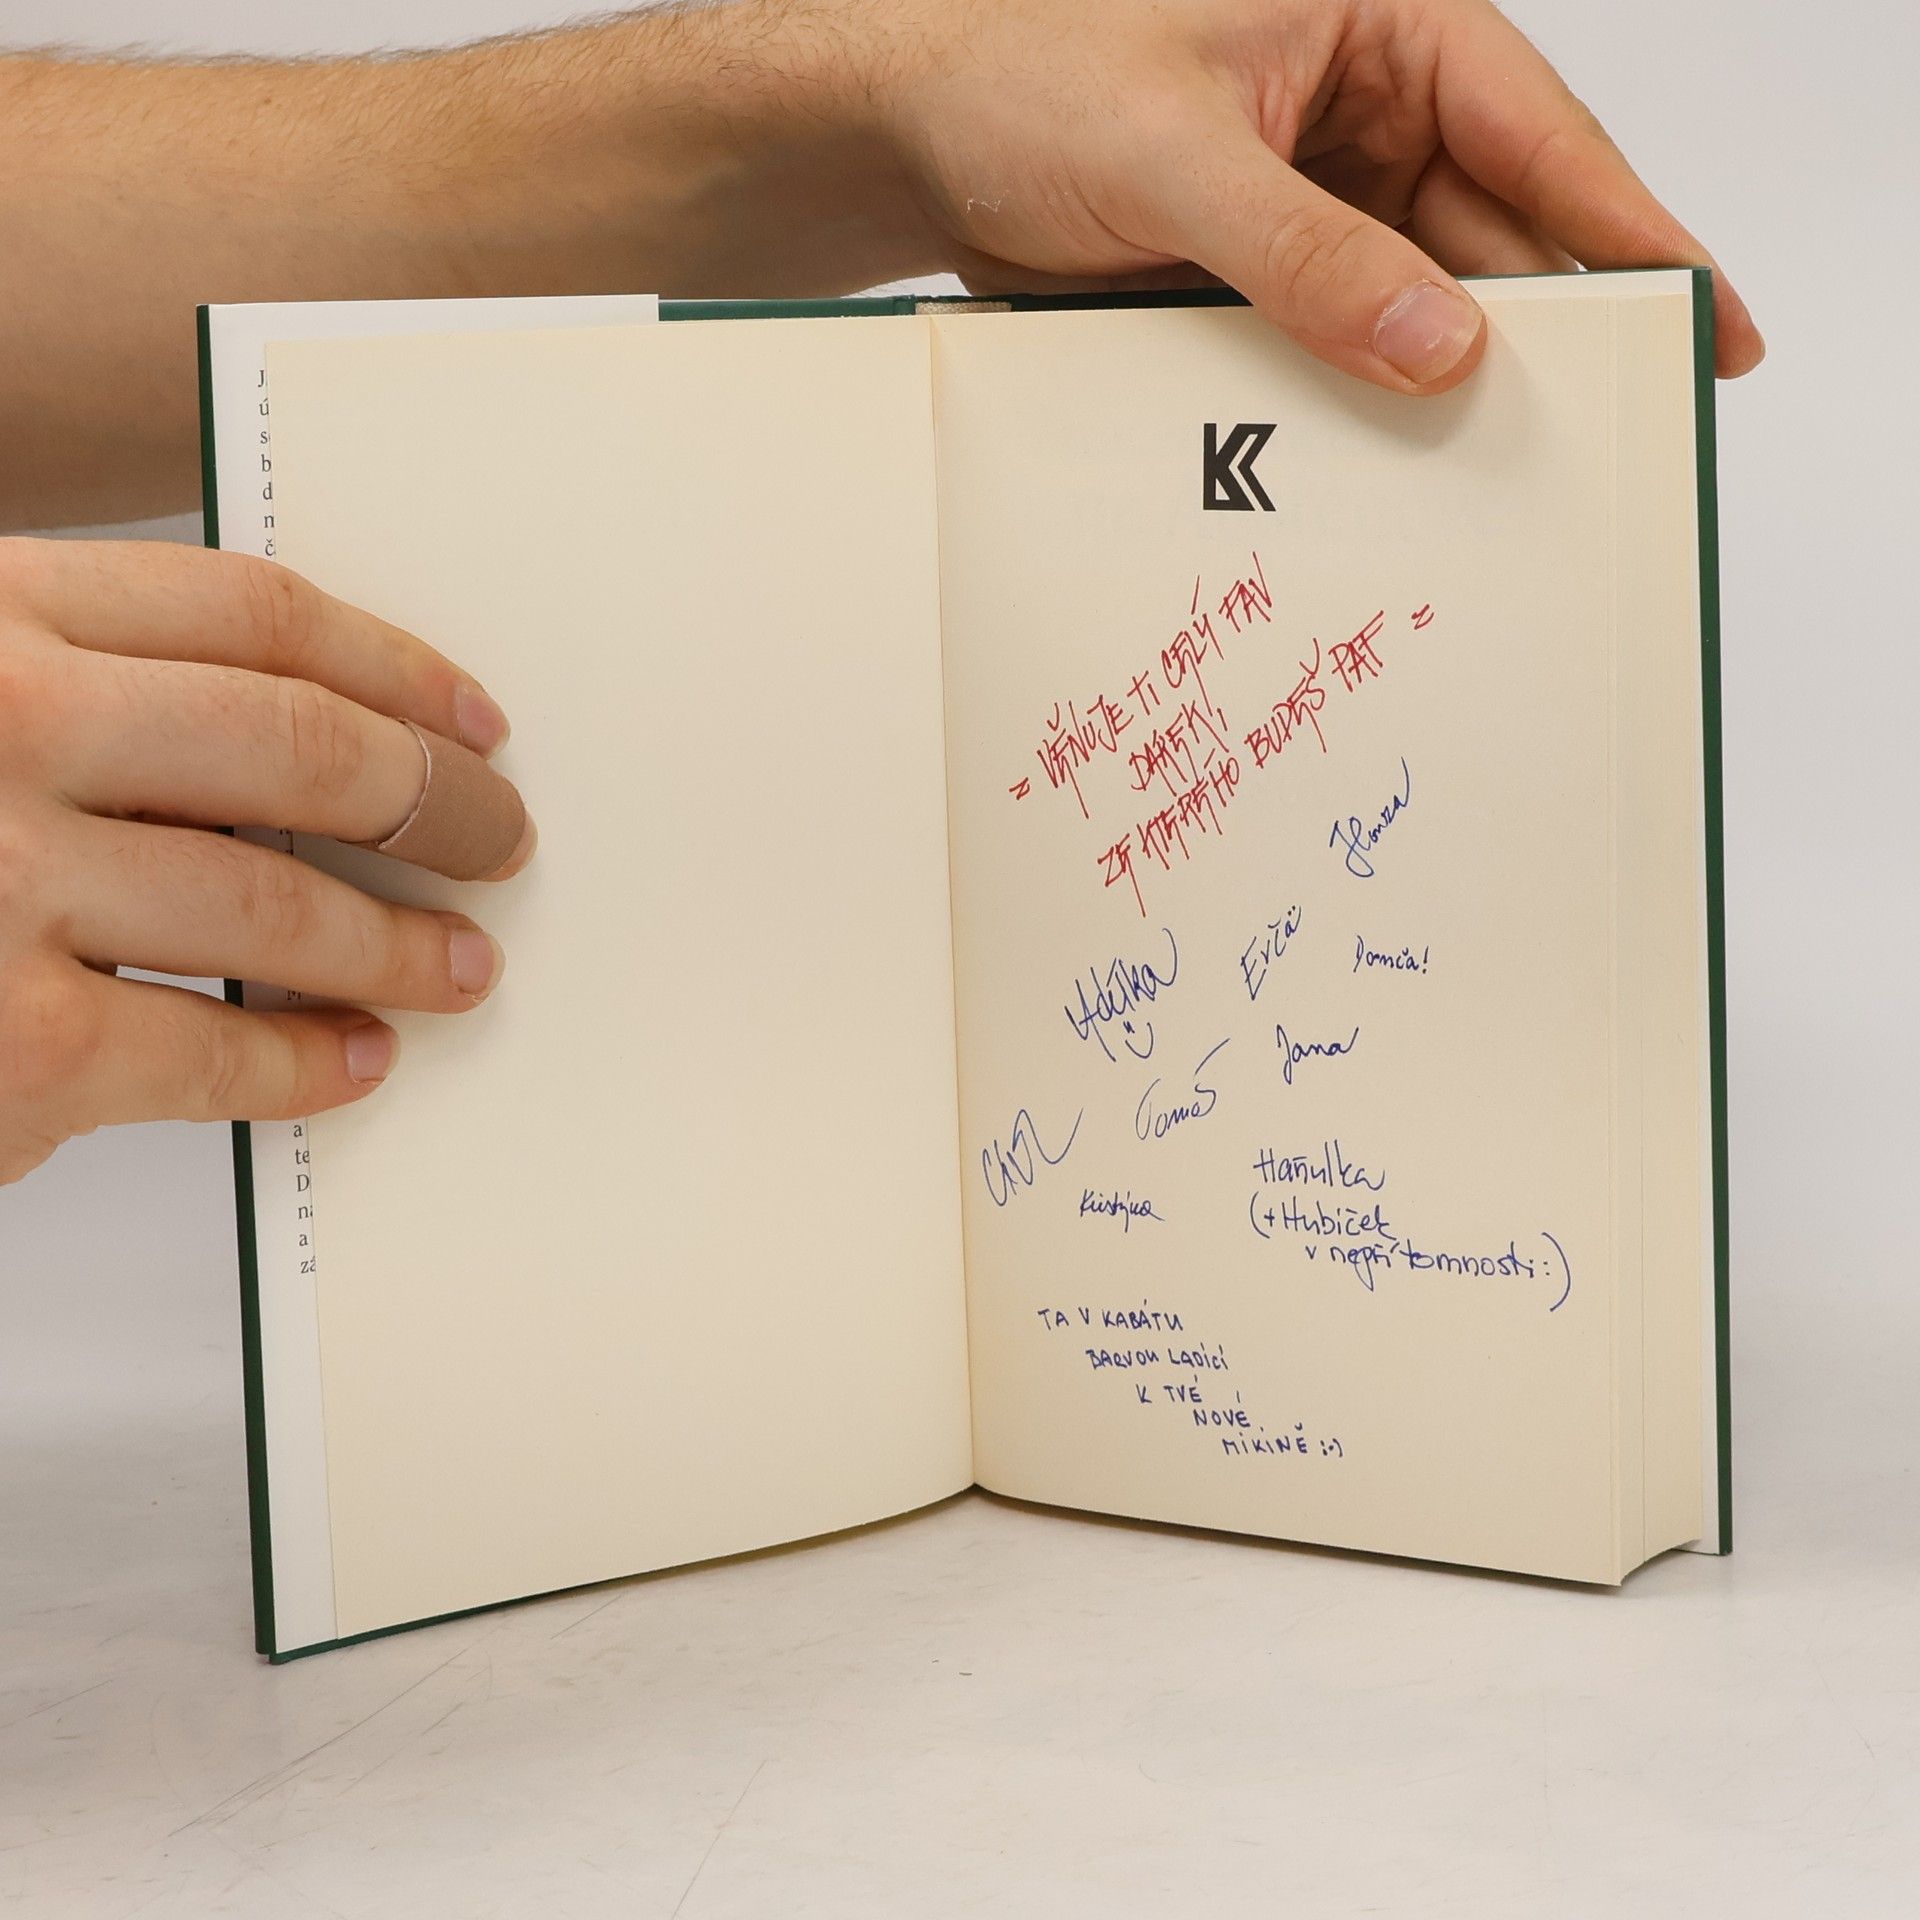 K
= VĚNUJE TI CELÝ FAV
DÁREK,
ZE KTERÉHO BUDEŠ PAF =
Honza
Adélka
Evča
Domča!
Tomáš
Jana
Kristýna
Haňulka
(+Hubíček
v nepřítomnosti:)
TA V KABÁTU
BARVOU LADÍCÍ
K TVÉ
NOVÉ
MIKINĚ :-)